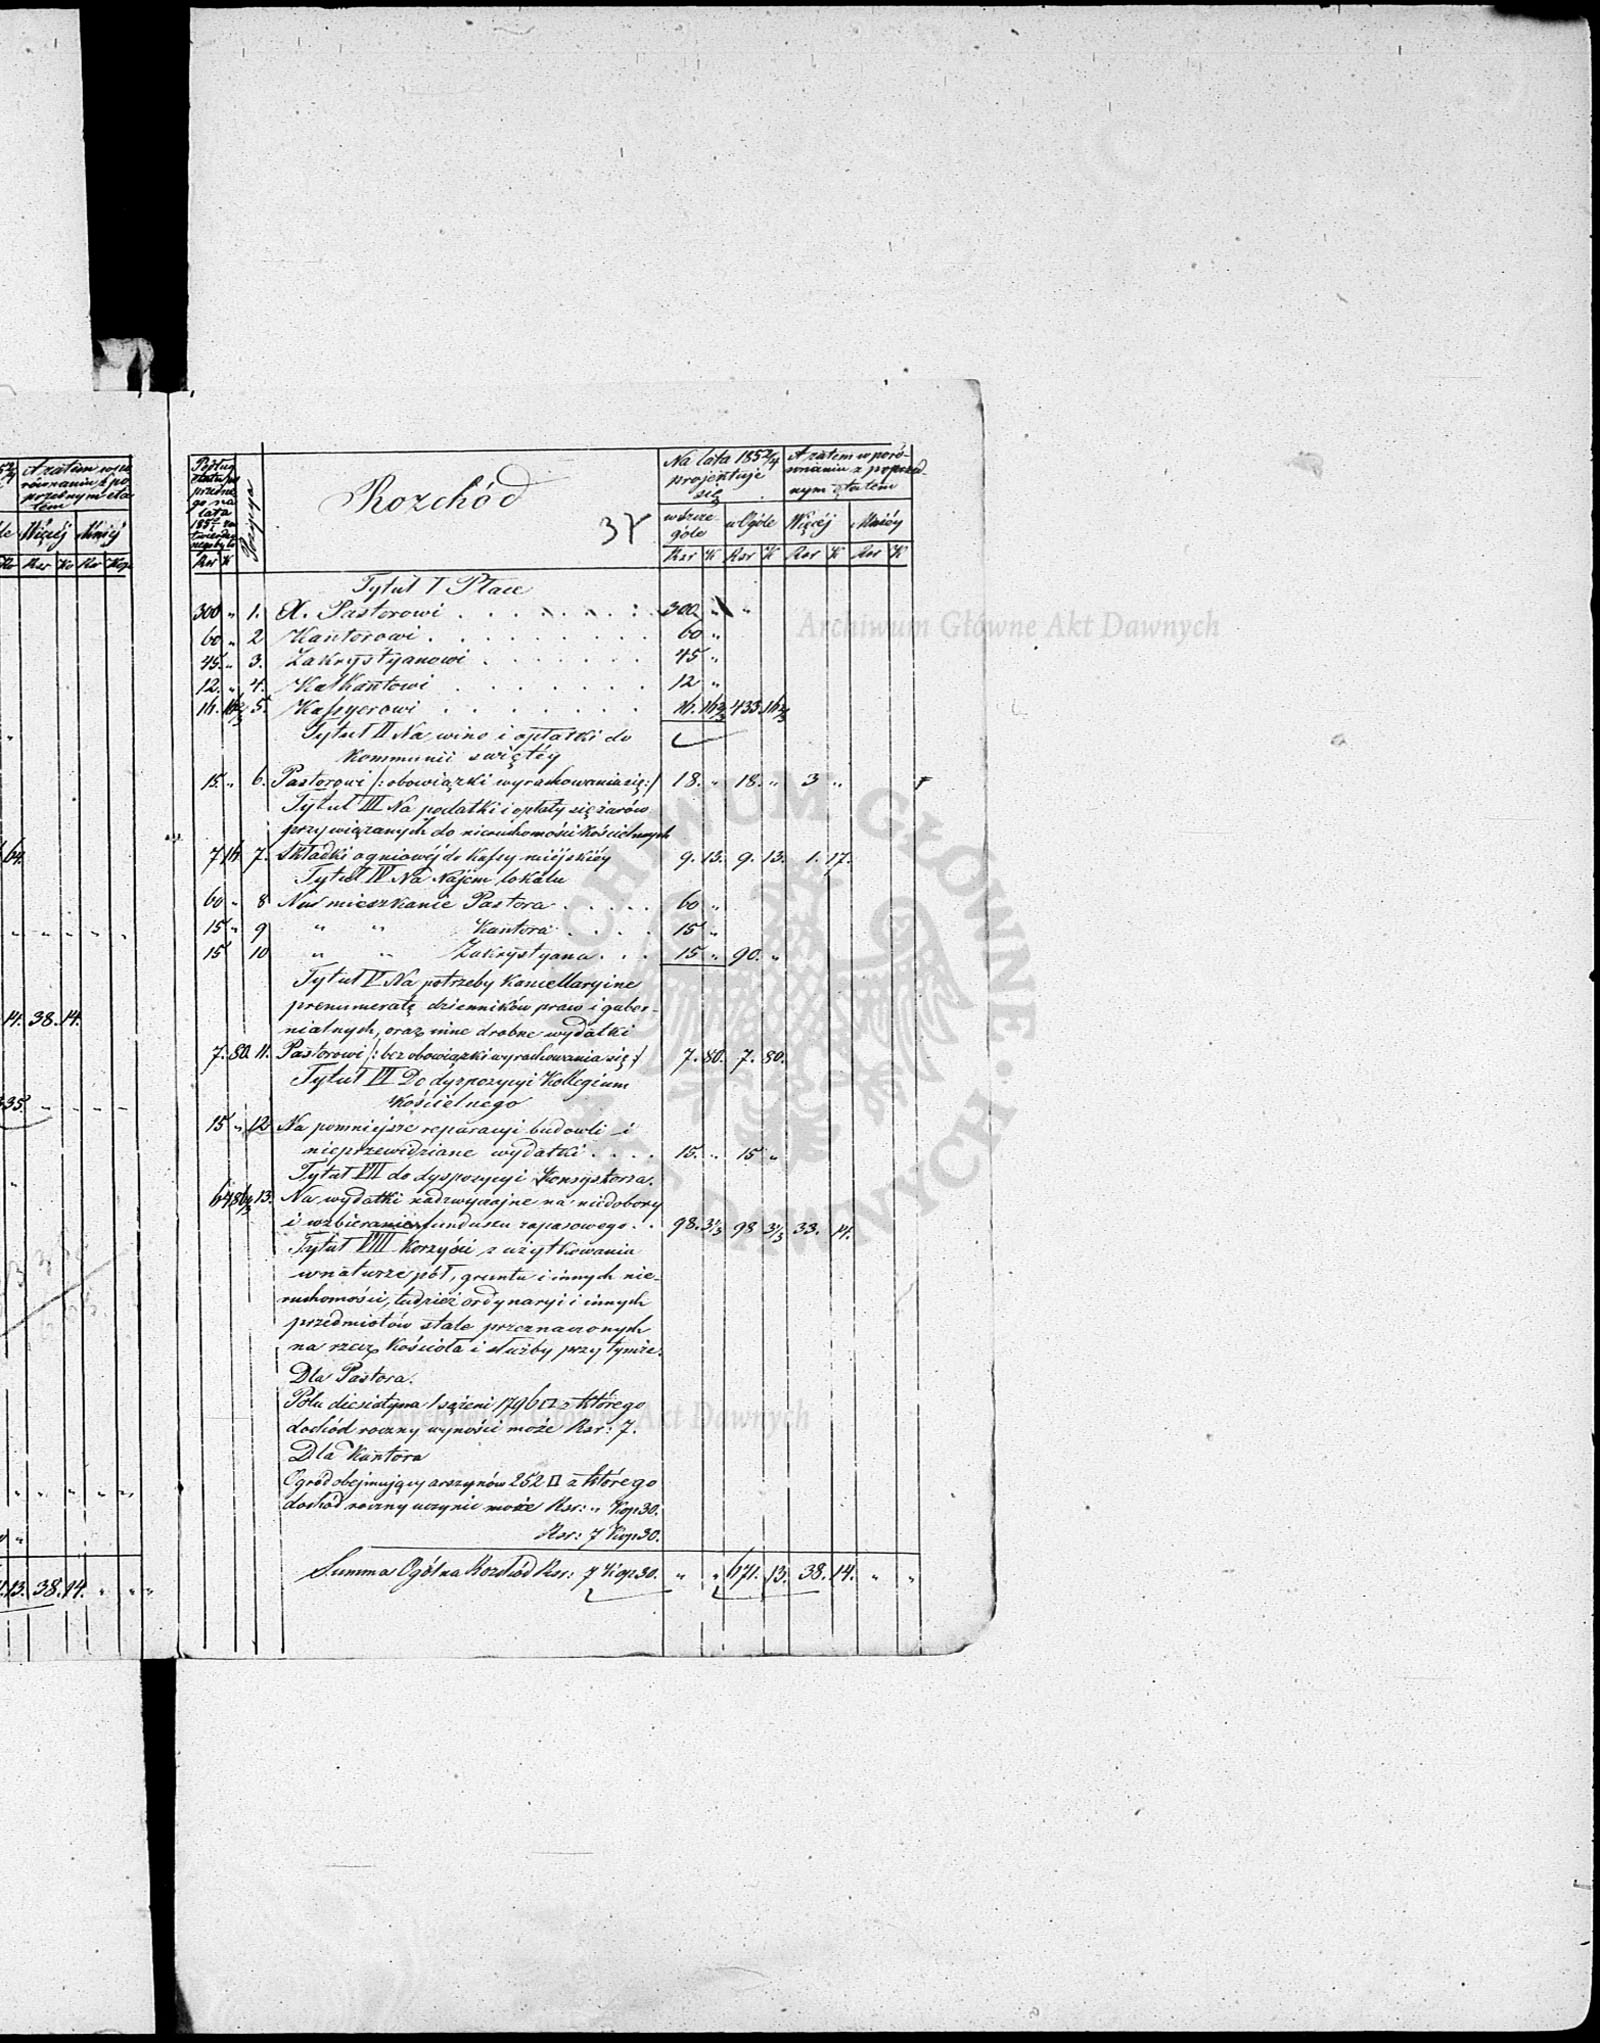 Rozchód
37
Na lata 1852/4
projektuje
się
A zatem w poró-
wnaniu z poprzed-
nym etatem
w szcze-
góle
w Ogóle
Więcéj
Mniéj
Pozycya
Rsr K Rsr K Rsr K Rsr K
Tytuł I Płace
300 „ 1. X. Pastorowi . . . . . . . 300 „
60 „ 2 Kantorowi . . . . . . . 60 „
45 „ 3. Zakrystyanowi . . . . . . 45 „
12. „ 4. Kalkantowi . . . . . . . 12 „
16. 16⅔ 5. Kassyerowi . . . . . . . 16. 16⅔ 433. 16⅔
Tytuł II Na wino i opłatki do
Kommunii świętéy
15. „ 6. Pastorowi /: obowiązki wyrachowania się :/ 18. „ 18. „ 3 „
Tytuł III Na podatki i opłaty ciężarów
przywiązanych do nieruchomości kościelnych
7. 16 7. Składki ogniowéj do kassy miéjskiéy 9. 13. 9. 13. 1. 17.
Tytuł IV Na Najem lokalu
60 „ 8 Na mieszkanie Pastora . . . . . 60 „
15 „ 9 „ „ Kantora . . . . 15 „
15 10 „ „ Zakrystyana . . . 15 „ 90. „
Tytuł V Na potrzeby Kancellaryine
prenumeratę dzienników praw i guber-
nialnych, oraz inne drobne wydatki
7. 80. 11. Pastorowi /: bez obowiązki wyrachowania się :/ 7. 80. 7. 80.
Tytuł VI Do dyspozycyi Kollegium
Kościelnego
15 „ 12 Na pomniejsze reparacyi budowli i
nieprzewidziane wydatki . . . . 15. „ 15 „
Tytuł VII do dyspozycyi Konsystorza.
64 86⅓ 13. Na wydatki nadzwyczajne na niedobory
i wzbieranie funduszu zapasowego . . 98. 3⅓ 98 3⅓ 33. 14.
Tytuł VIII Korzyści z użytkowania
w naturze pól, gruntu i innych nie-
ruchomości, tudzież ordynaryi i innych
przedmiotów stale przeznaczonych
na rzecz Kościoła i służby przy tymże.
Dla Pastora.
Polu diesiatyna 1 sążeni 1796 □ z którego
dochód roczny wynosić może Rsr: 7.
Dla Kantora
Ogród obejmujący arszynów 252 □ z którego
dochód roczny uczynić może Rsr: „ Kop 30.
Rsr: 7 Kop 30.
Summa Ogólna Rozchód Rsr: 7 Kop 30. „ „ 671. 13. 38. 14. „ „
A zatem w po-
równaniu z po
Więcéj Mniéj
Rsr Ko Rs Kop
64.
14. 38. 14.
335. „ „ „ „
13. 38. 14. „ „ „
Archiwum Główne Akt Dawnych
ARCHIWUM GŁÓWNE AKT DAWNYCH
Archiwum Główne Akt Dawnych